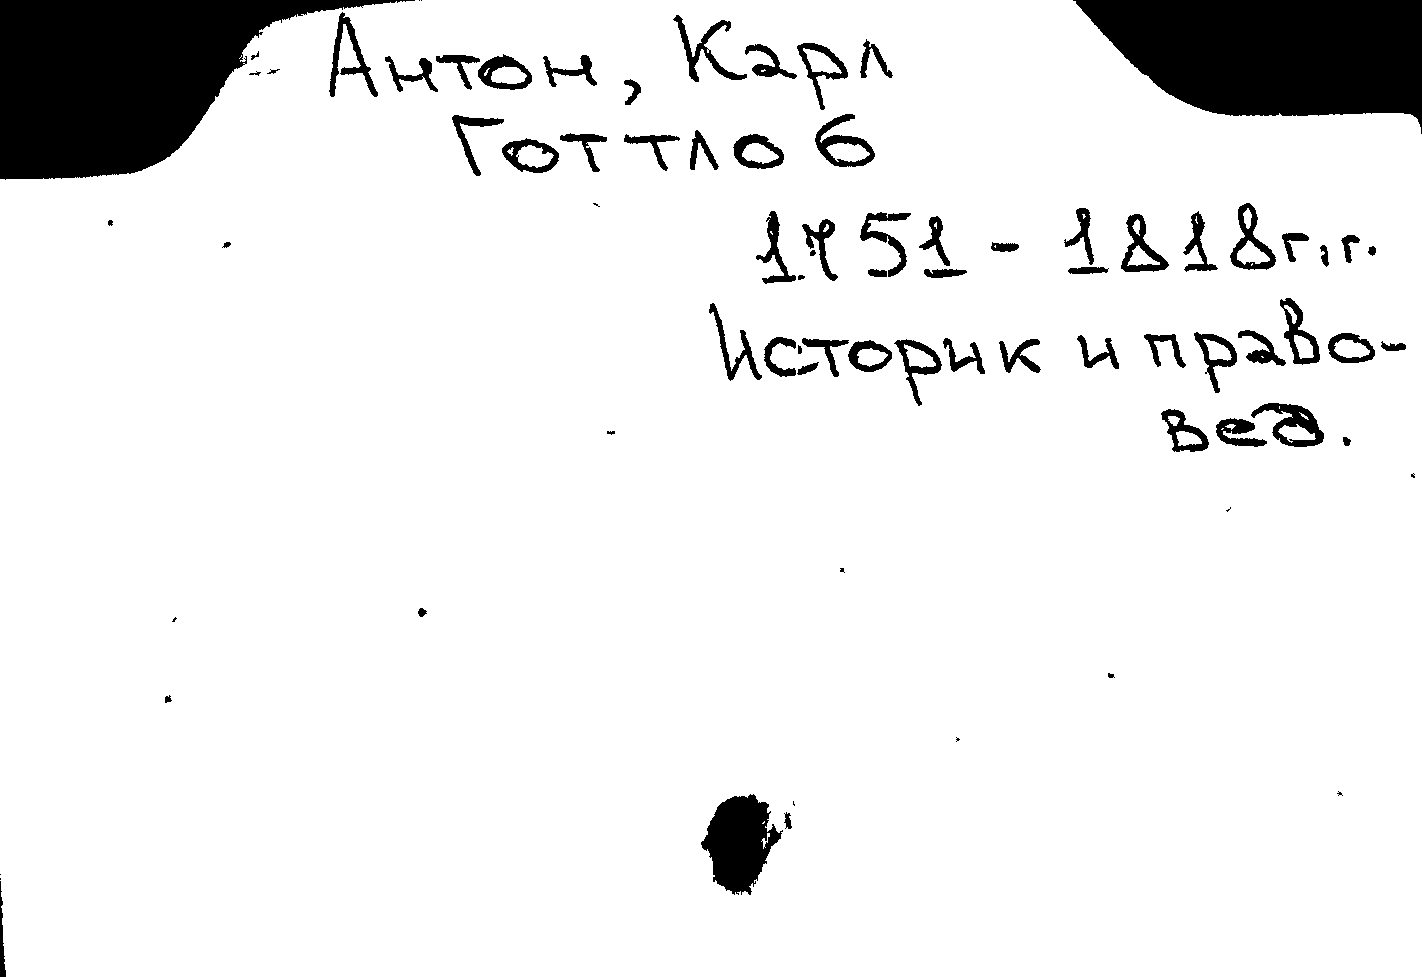 Антон, Карл
Готтлоб
1751 - 1818 г.г.
Историк и право-
вед.